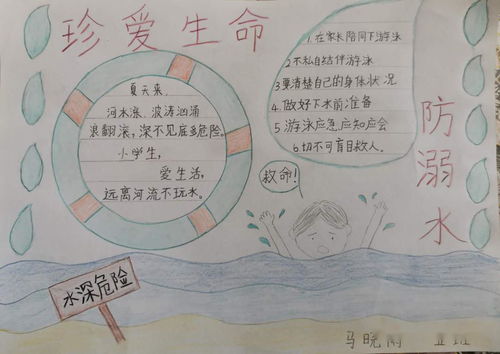 珍爱生命
夏天来,
河水涨、波涛汹涌
浪翻滚,深不见底多危险。
小学生,
爱生活,
远离河流不玩水。
1.在家长陪同下游泳
2不私自结伴游泳
3要清楚自己的身体状况
4.做好下水前准备
5游泳应急应知应会
6切不可盲目救人。
防溺水
救命!
水深危险
马晓雨 五班